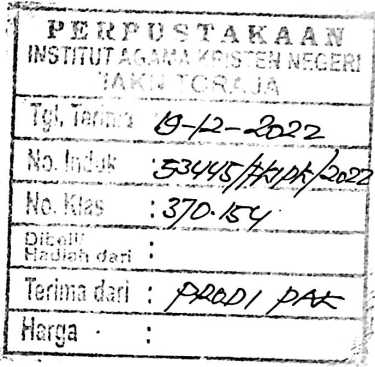 PERPUSTAKAAN
INSTITUT AGAMA KRISTEN NEGERI
IAKN TORAJA
Tgl. Terima 19-12-2022
No. Induk : 53445//2022
No. Klas : 370.154
Dibeli/
Hadiah dari :
Terima dari : PRODI PAK
Harga :